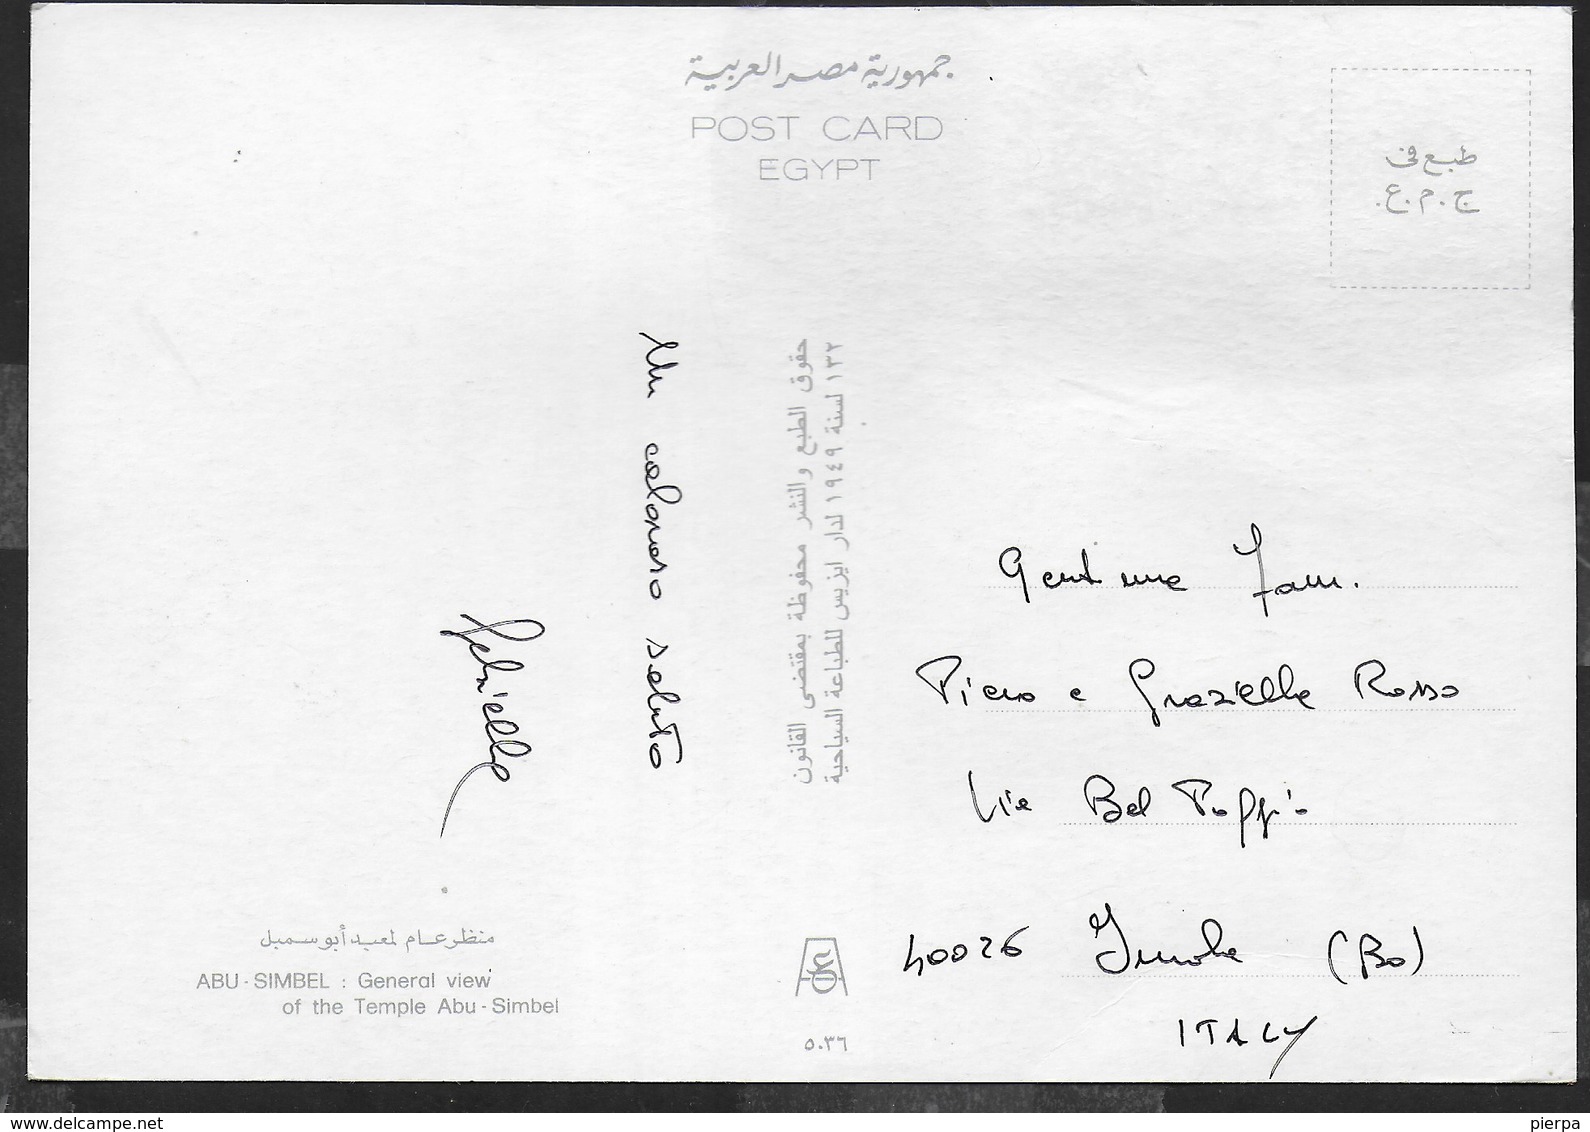 جمهورية مصر العربية
POST CARD
EGYPT
طبع في
ج.م.ع.
حقوق الطبع والنشر محفوظة بمقتضى القانون
١٣٢ لسنة ١٩٤٩ لدار ايزيس للطباعة السياحية
Un caloroso saluto
Gabriella
Gent.me Fam.
Piero e Graziella Rosso
Via Bel Poggio
40026 Imola (Bo)
ITALY
منظر عام لمعبد أبو سمبل
ABU-SIMBEL : General view
of the Temple Abu-Simbel
٥٠٣٦
www.delcampe.net
pierpa